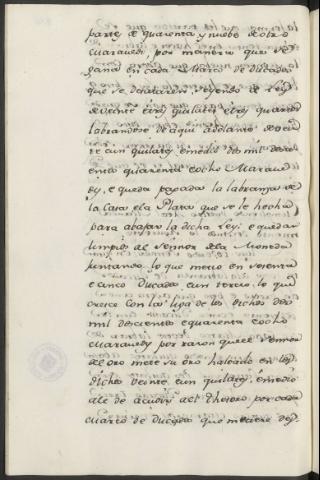 partes de quarenta y nuebe de otro
Maravedi por manera que se
gana en cada Marco de Ducados
que se deshicieren seyendo de Ley
de veinte etres quilates etres quartos
labrandose de aqui adelante de vein
te eun quilates emedio dos mil docci
entos quarenta eocho Marave
dys, e queda pagada la labranza de
la Casa ela Plata que se le hecha
para abajar la dicha Ley: e quedan
limpios al Sennor de la Moneda
juntando lo que metio en setenta
e cinco Ducados eun tercio, lo que
cresce con la liga de los dichos dos
mil descientos e quarenta e ocho
Maravedys por razon que el Sennor
del oro mete su oro habiendo en los
dichos veinte eun quilates, emedio
a le de acudir act Thesoro por cada
Marco de Ducados que metiere des-